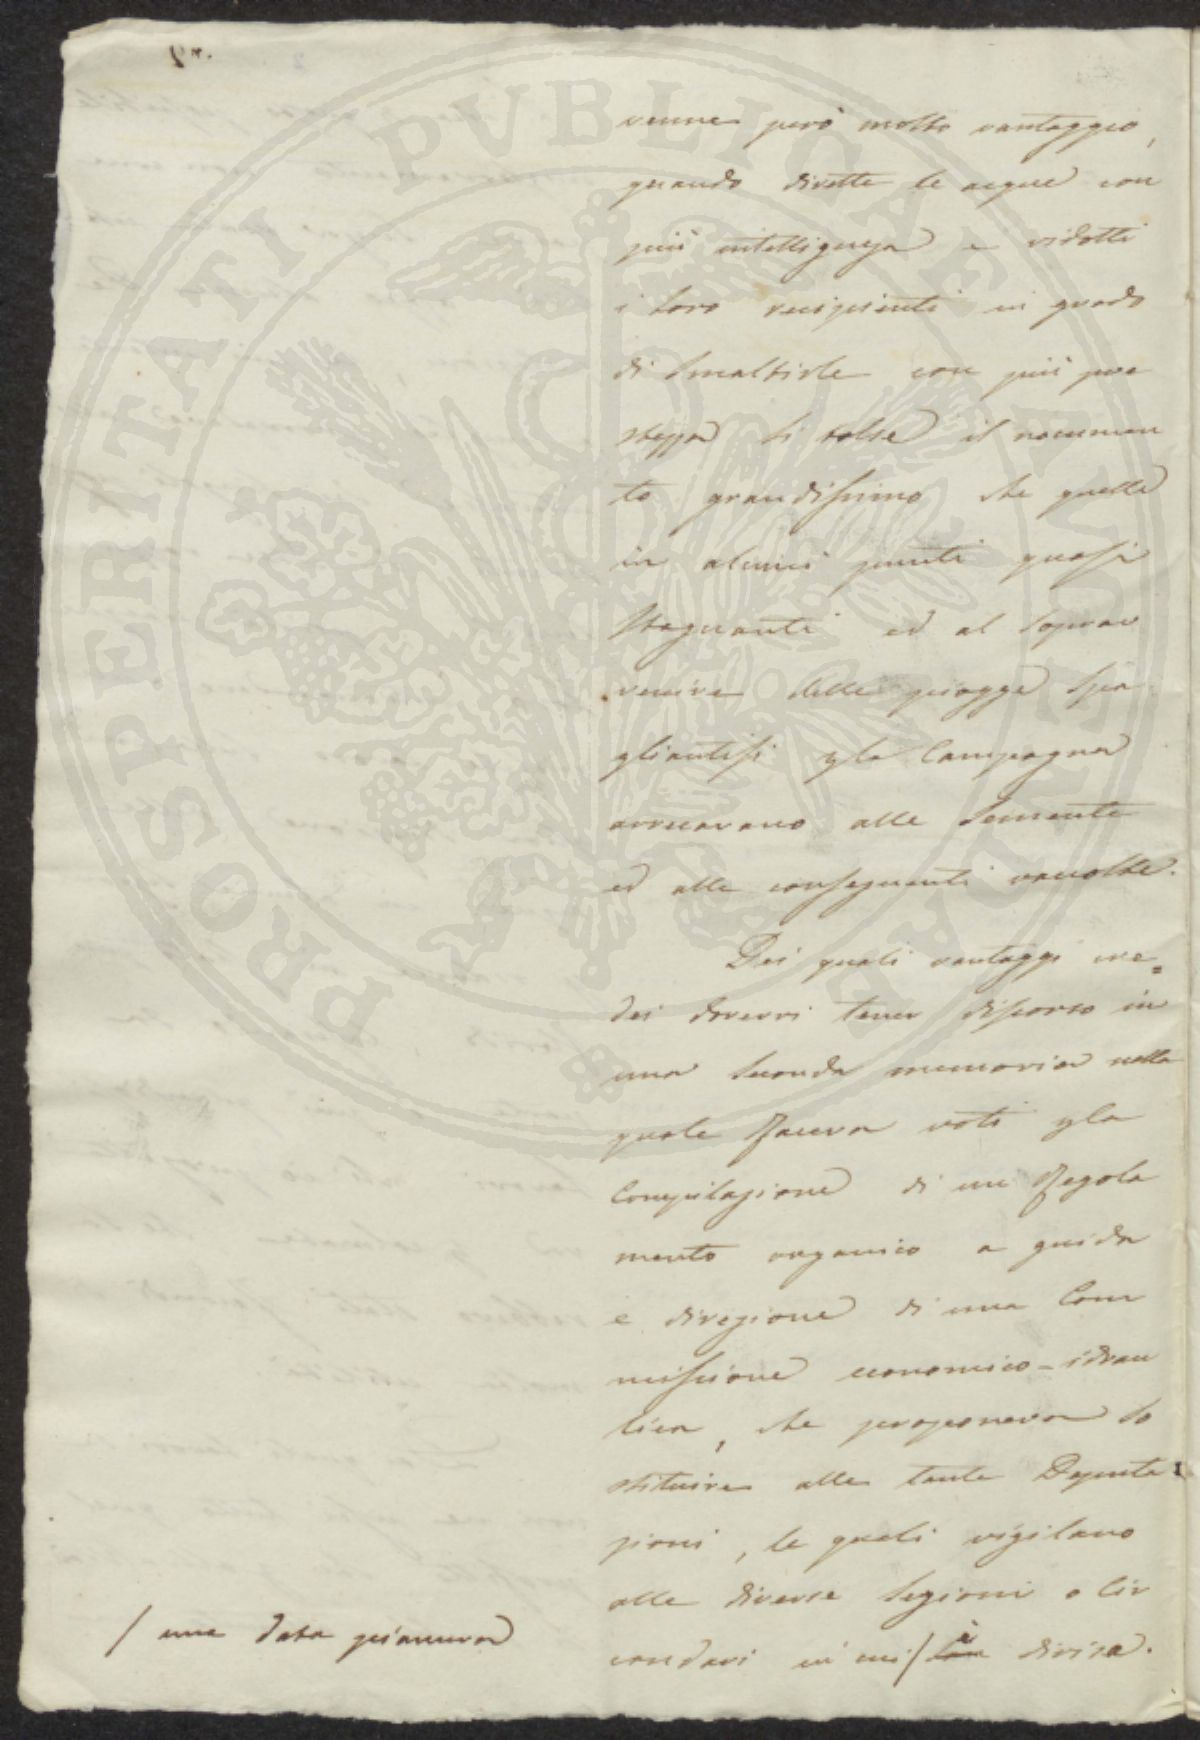 PROSPERITATI PVBLICAE AVGENDAE
venne però molto vantaggio,
quando dirette le acque con
più intelligenza e ridotti
i loro recipienti in grado
di smaltirle con più pre
stezza si tolse il nocumen
to grandissimo che quelle
in alcuni punti quasi
stagnanti ed al soprav
venire delle piogge spa
gliantisi p la Campagna
arrecavano alle semente
ed alle conseguenti raccolte.
Dei quali vantaggi cre=
dei dovervi tener discorso in
una seconda memoria nella
quale faceva voti p la
Compilazione di un Regola
mento organico a guida
e direzione di una Com
missione economico-idrau
lica, che proponeva so
stituire alle tante Deputa
zioni, le quali vigilano
alle diverse sezioni o Cir
condari in cui / è divisa.
/ una data pianura